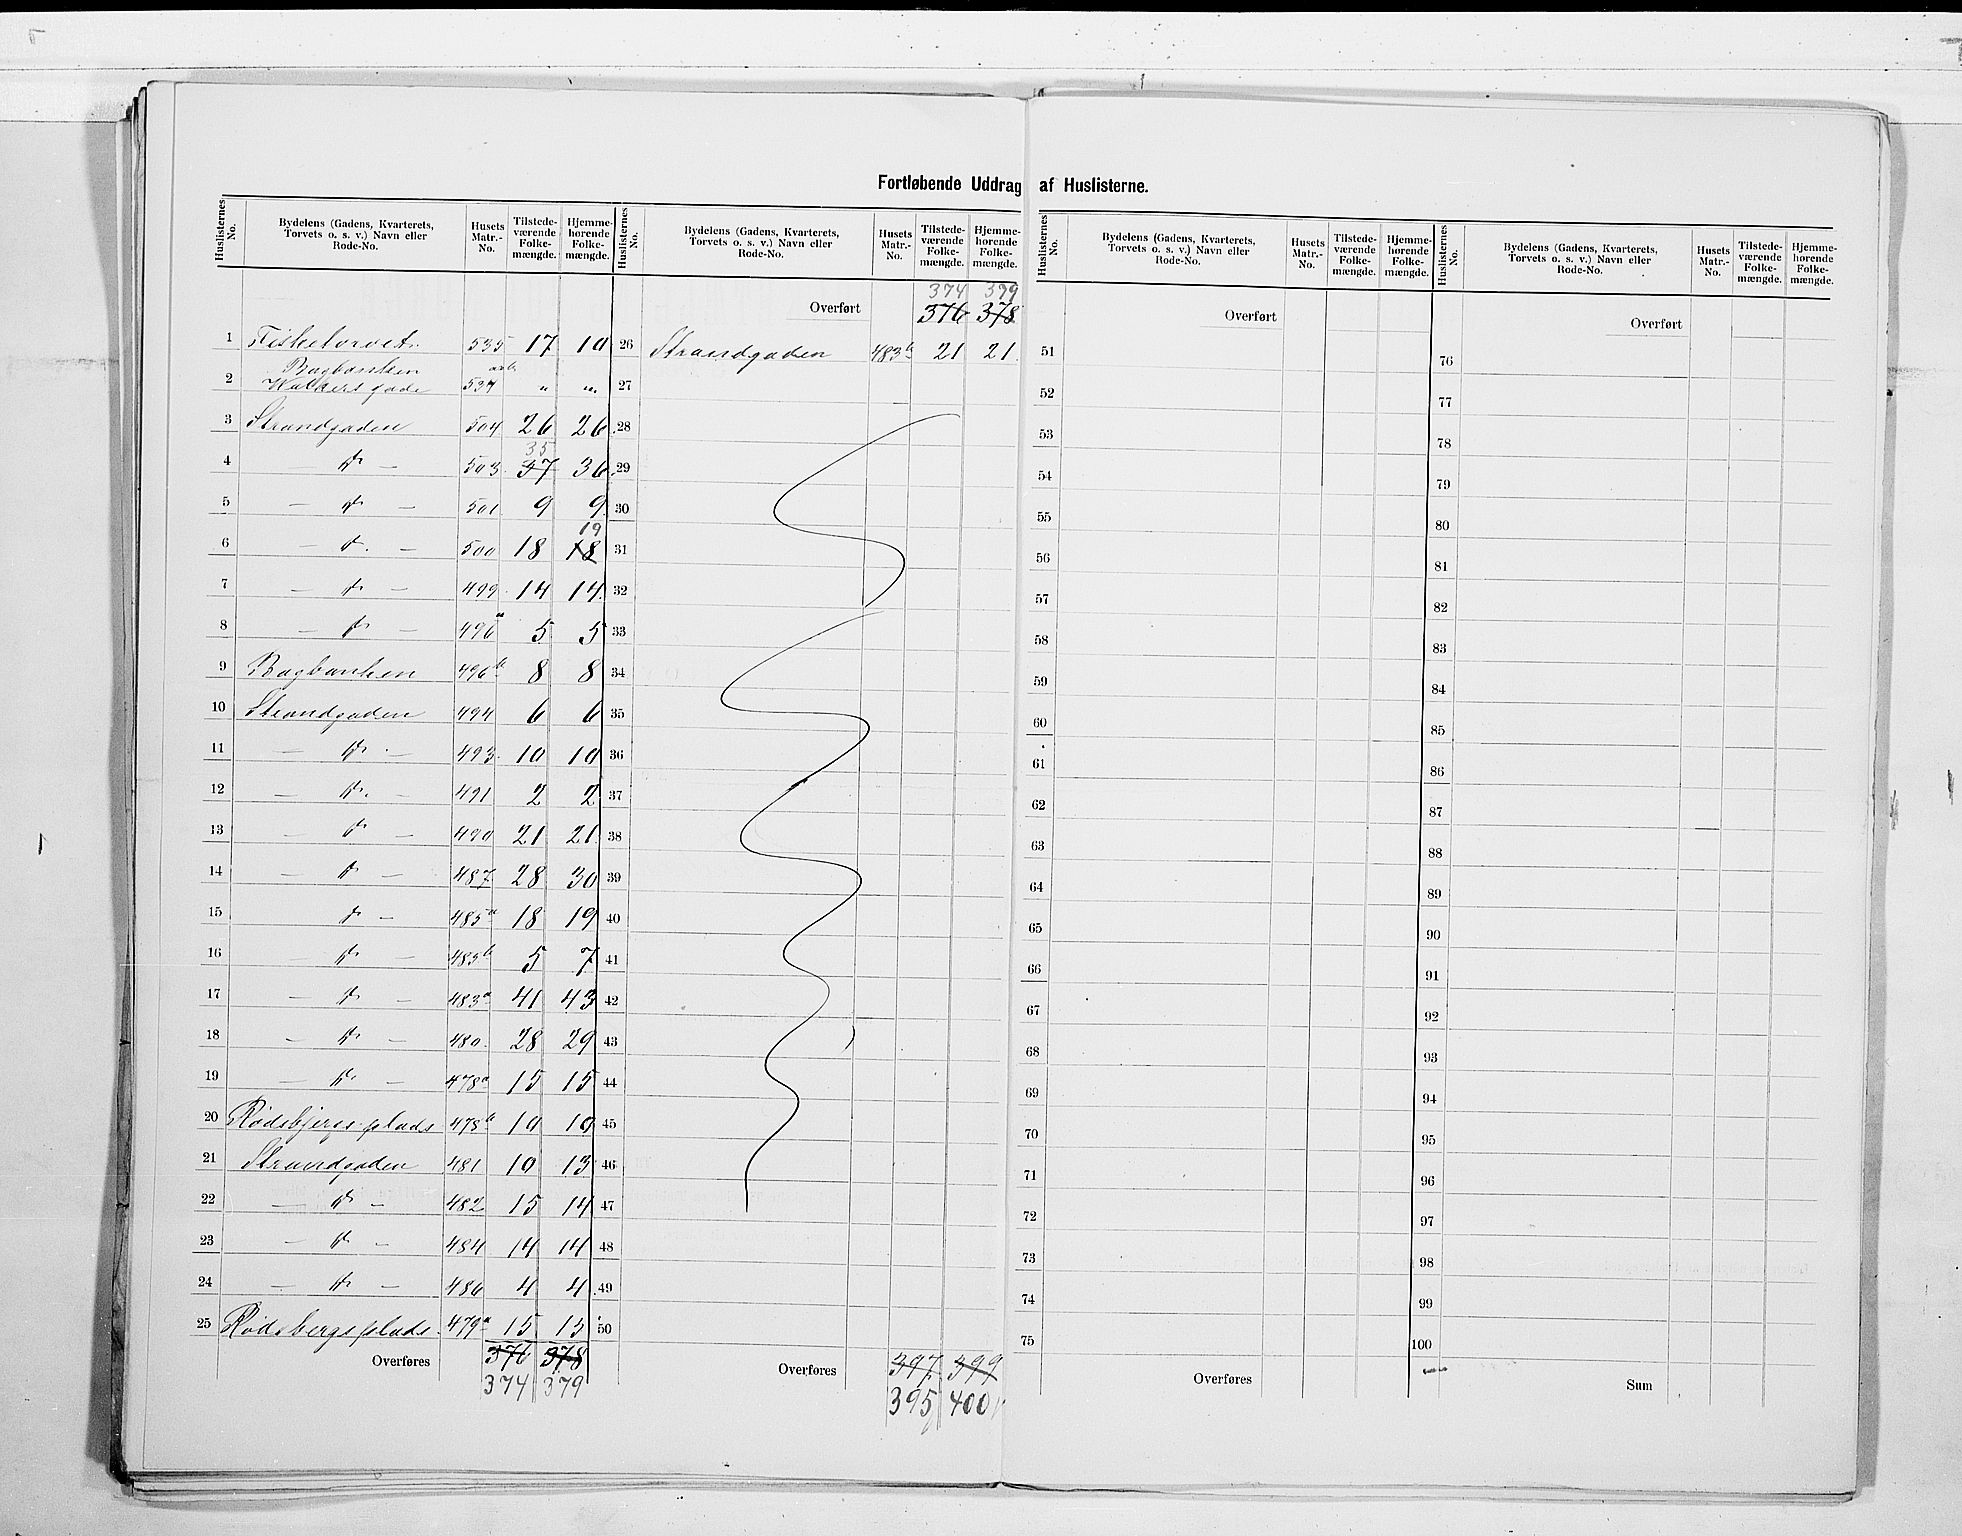 Fortløbende Uddrag af Huslisterne.
Huslisternes No. | Bydelens (Gadens, Kvarterets, Torvets o. s. v.) Navn eller Rode-No. | Husets Matr.-No. | Tilstede-værende Folke-mængde. | Hjemme-hørende Folke-mængde.
1 Fisketorvet. 535 17 10
2 Bagbanken 534
3 Strandgaden 504 26 26
4 — do — 503 35 37 36
5 — do — 501 9 9
6 — do — 500 18 19 18
7 — do — 499 14 14
8 — do — 496a 5 5
9 Bagbanken 496b 8 8
10 Strandgaden 494 6 6
11 — do — 493 10 10
12 — do — 491 2 2
13 — do — 490 21 21
14 — do — 487 28 30
15 do — 485a 18 19
16 — do — 485b 5 7
17 — do — 483a 41 43
18 — do — 480 28 29
19 — do — 478a 15 15
20 Rödsbjergs plads 478b 10 10
21 Strandgaden 481 10 13
22 — do — 482 15 14
23 — do — 484 14 14
24 — do — 486 4 4
25 Rödsbergs plads 479a 15 15
Overføres 376 378
374 379
Huslisternes No. | Bydelens (Gadens, Kvarterets, Torvets o. s. v.) Navn eller Rode-No. | Husets Matr.-No. | Tilstede-værende Folke-mængde. | Hjemme-hørende Folke-mængde.
374 379
Overført 376 378
26 Strandgaden 483b 21 21
27
28
29
30
31
32
33
34
35
36
37
38
39
40
41
42
43
44
45
46
47
48
49
50
Overføres 397 399
395 400
Huslisternes No. | Bydelens (Gadens, Kvarterets, Torvets o. s. v.) Navn eller Rode-No. | Husets Matr.-No. | Tilstede-værende Folke-mængde. | Hjemme-hørende Folke-mængde.
Overført
51
52
53
54
55
56
57
58
59
60
61
62
63
64
65
66
67
68
69
70
71
72
73
74
75
Overføres
Huslisternes No. | Bydelens (Gadens, Kvarterets, Torvets o. s. v.) Navn eller Rode-No. | Husets Matr.-No. | Tilstede-værende Folke-mængde. | Hjemme-hørende Folke-mængde.
Overført
76
77
78
79
80
81
82
83
84
85
86
87
88
89
90
91
92
93
94
95
96
97
98
99
100
Sum